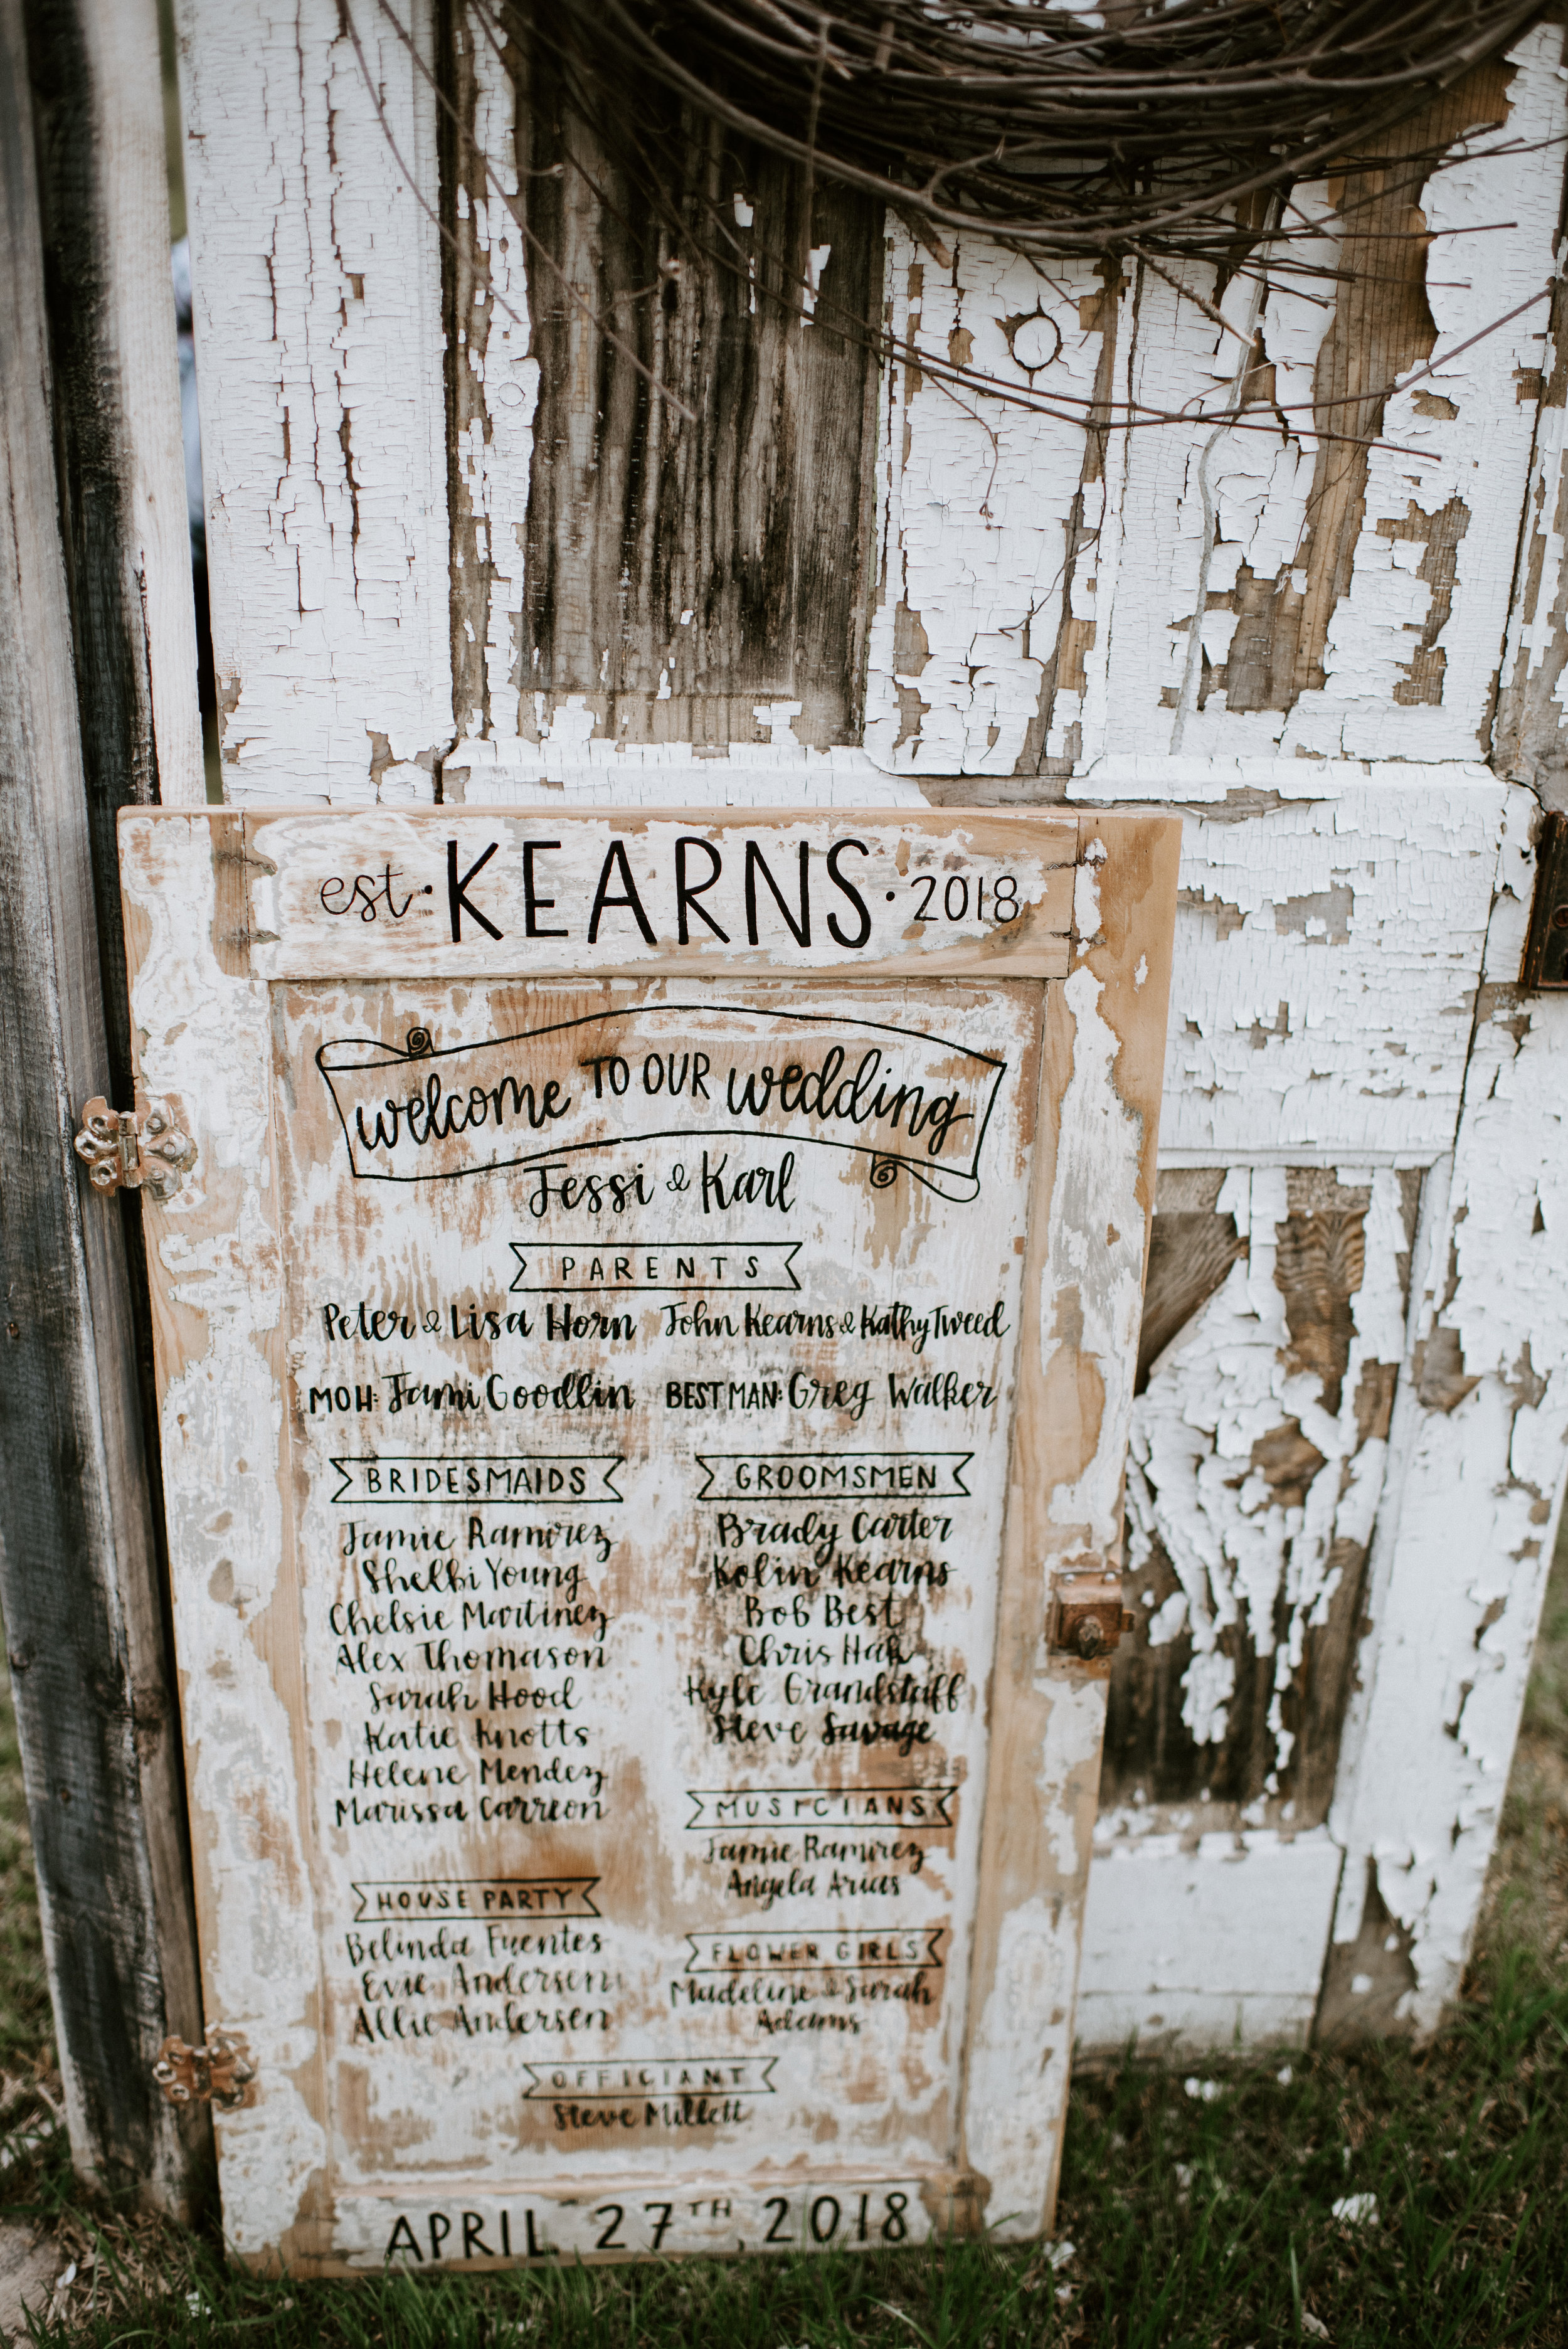 est. KEARNS · 2018
welcome TO OUR wedding
Jessi & Karl
PARENTS
Peter & Lisa Horn
John Kearns & Kathy Tweed
MOH: Jami Goodlin
BEST MAN: Greg Walker
BRIDESMAIDS
Jamie Ramirez
Shelbi Young
Chelsie Martinez
Alex Thomason
Sarah Hood
Katie Knotts
Helene Mendez
Marissa Carreon
HOUSE PARTY
Belinda Fuentes
Evie Andersen
Allie Andersen
GROOMSMEN
Brady Carter
Kolin Kearns
Bob Best
Chris
Kyle Grandstaff
Steve Savage
MUSICIANS
Jamie Ramirez
Angela Arias
FLOWER GIRLS
Madeline & Sarah
Adams
OFFICIANT
Steve Millett
APRIL 27TH, 2018